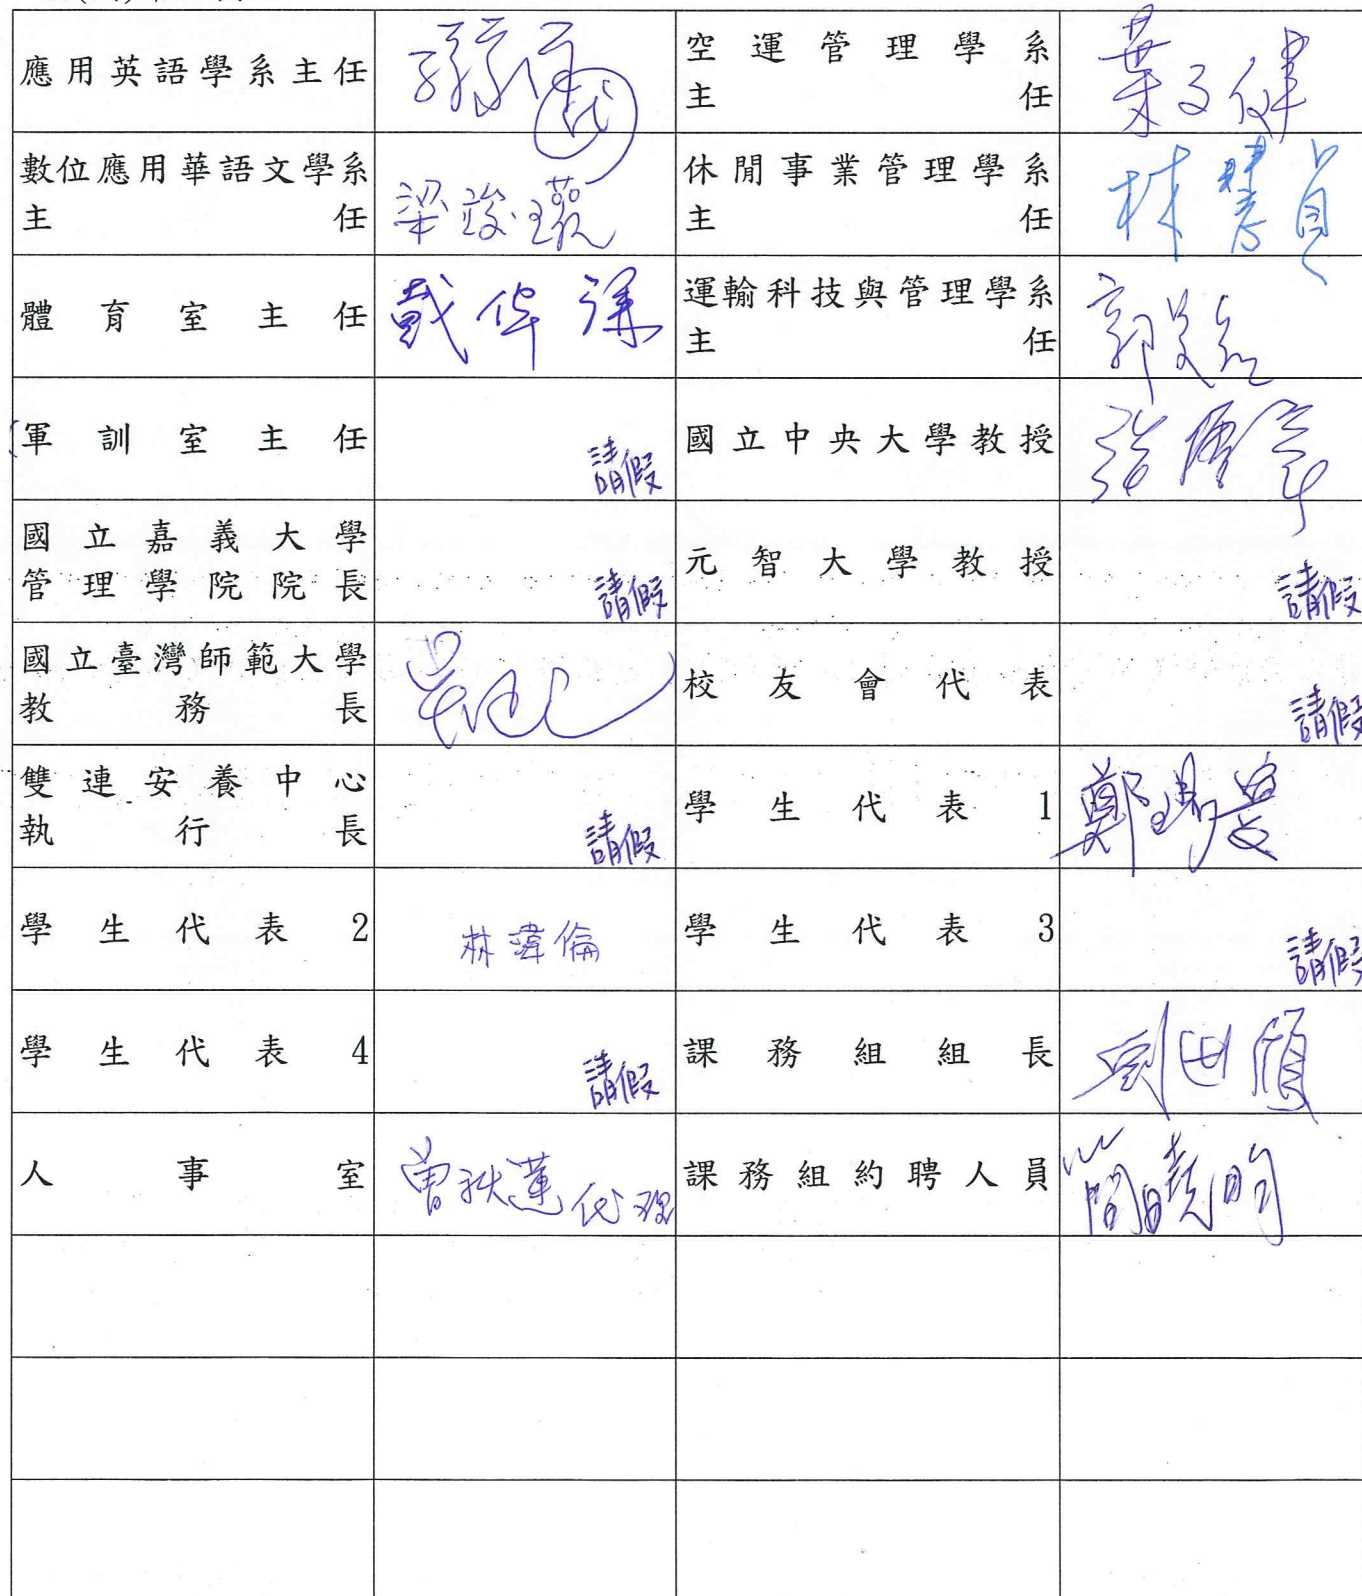 應用英語學系主任
空運管理學系
主任
葉
數位應用華語文學系
主任
梁竣
休閒事業管理學系
主任
林慧貞
體育室主任
戴
運輸科技與管理學系
主任
郭
軍訓室主任
請假
國立中央大學教授
國立嘉義大學
管理學院院長
請假
元智大學教授
請假
國立臺灣師範大學
教務長
校友會代表
請假
雙連安養中心
執行長
請假
學生代表1
鄭
學生代表2
林瑋倫
學生代表3
請假
學生代表4
請假
課務組組長
人事室
曾秋蓮代理
課務組約聘人員
簡